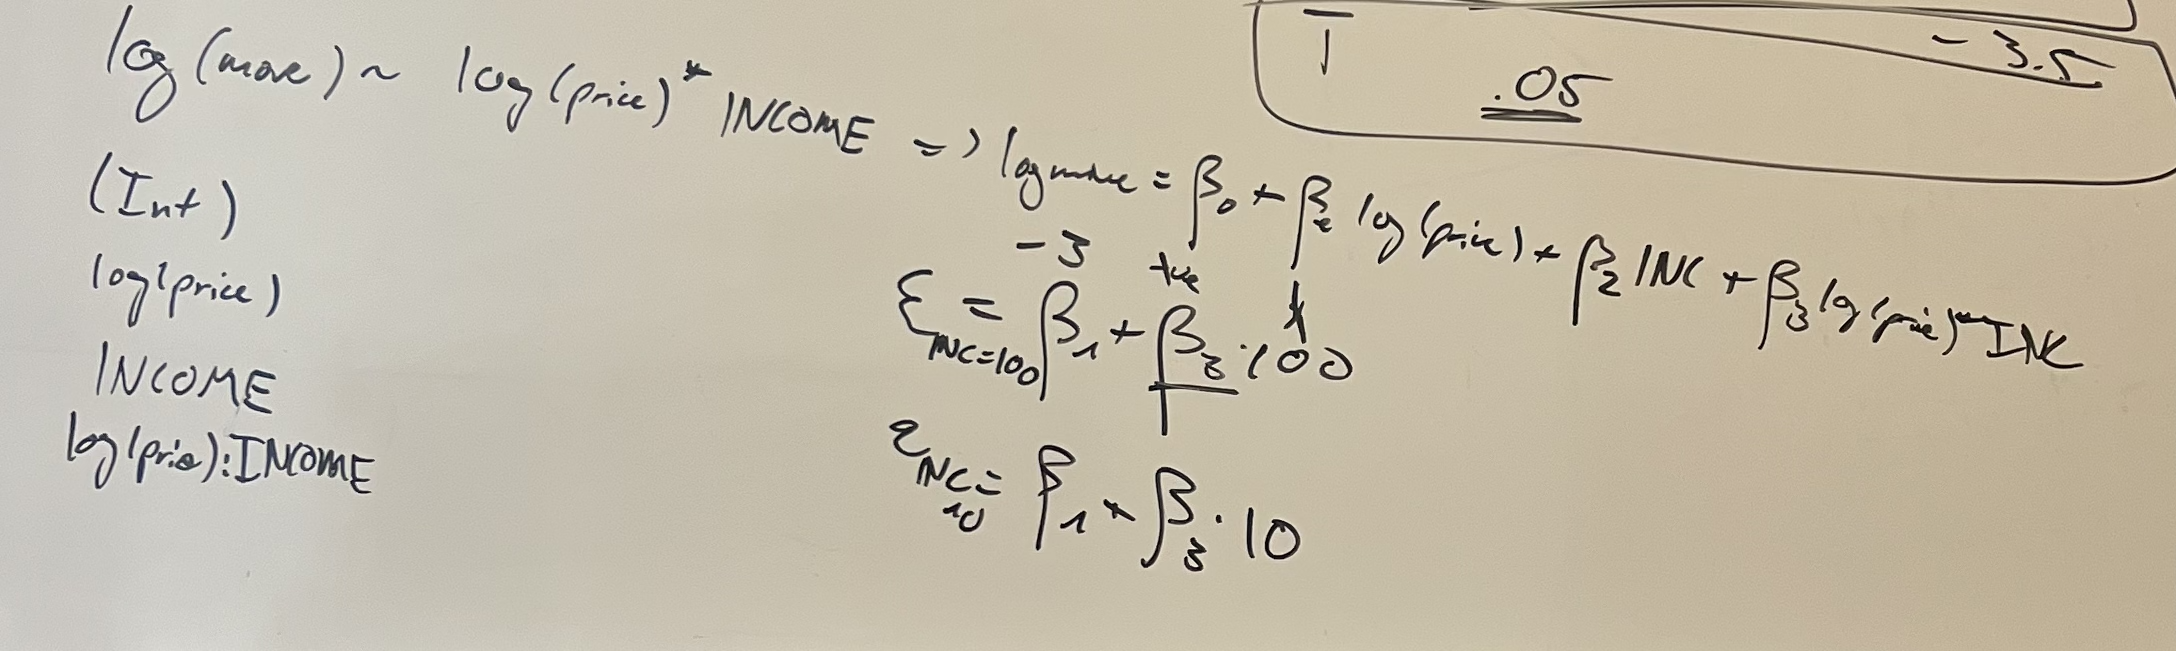 log(move) ~ log(price) * INCOME => log move = β₀ + β₁ log(price) + β₂ INC + β₃ log(price) * INC
(Int)
log(price)
INCOME
log(price):INCOME
-3 +ve
ε INC=100 = β₁ + β₃ · 100
ε INC=10 = β₁ + β₃ · 10
- 3.5
.05